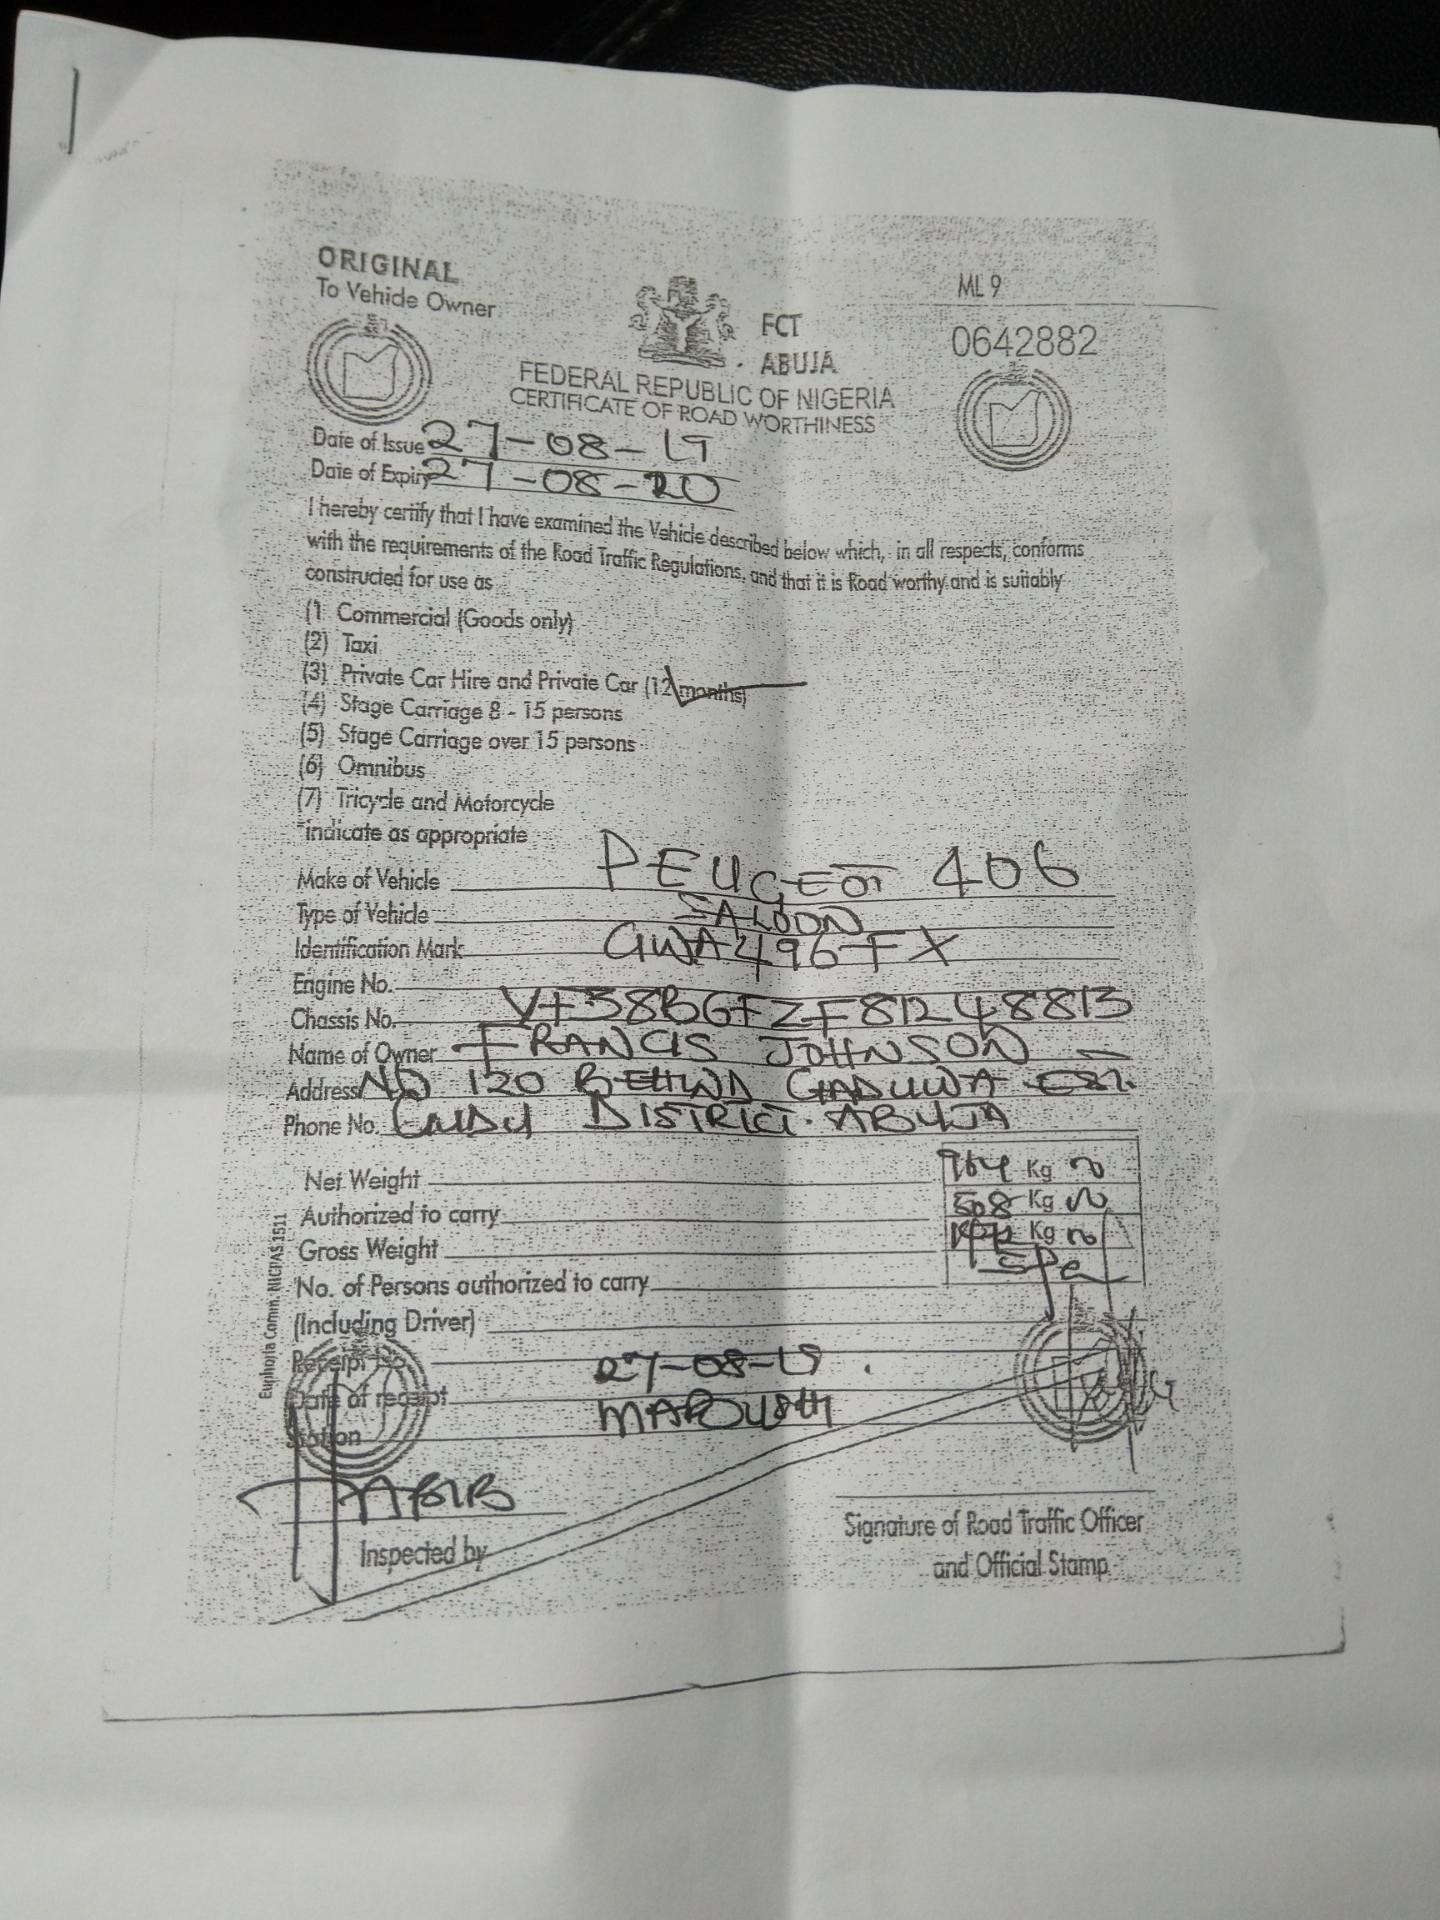 ORIGINAL
To Vehicle Owner
ML 9
FCT
ABUJA
0642882
FEDERAL REPUBLIC OF NIGERIA
CERTIFICATE OF ROAD WORTHINESS
Date of Issue 27-08-19
Date of Expiry 27-08-20
I hereby certify that I have examined the Vehicle described below which, in all respects, conforms
with the requirements of the Road Traffic Regulations, and that it is Road worthy and is suitably
constructed for use as
(1 Commercial (Goods only)
(2) Taxi
(3) Private Car Hire and Private Car (12 months)
(4) Stage Carriage 8 - 15 persons
(5) Stage Carriage over 15 persons
(6) Omnibus
(7) Tricycle and Motorcycle
*indicate as appropriate
Make of Vehicle PEUGEOT 406
Type of Vehicle SALOON
Identification Mark GWA496FX
Engine No.
Chassis No.
Name of Owner FRANCIS JOHNSON
Address NO 120 BEHIND GADUWA EST.
Phone No. DISTRICT. ABUJA
Net Weight Kg
Authorized to carry 508 Kg
Gross Weight Kg
No. of Persons authorized to carry
(Including Driver)
Receipt No
Date of receipt 27-08-19
Station
Inspected by
Signature of Road Traffic Officer
and Official Stamp
Euphoria Comm. NICPAS 1511